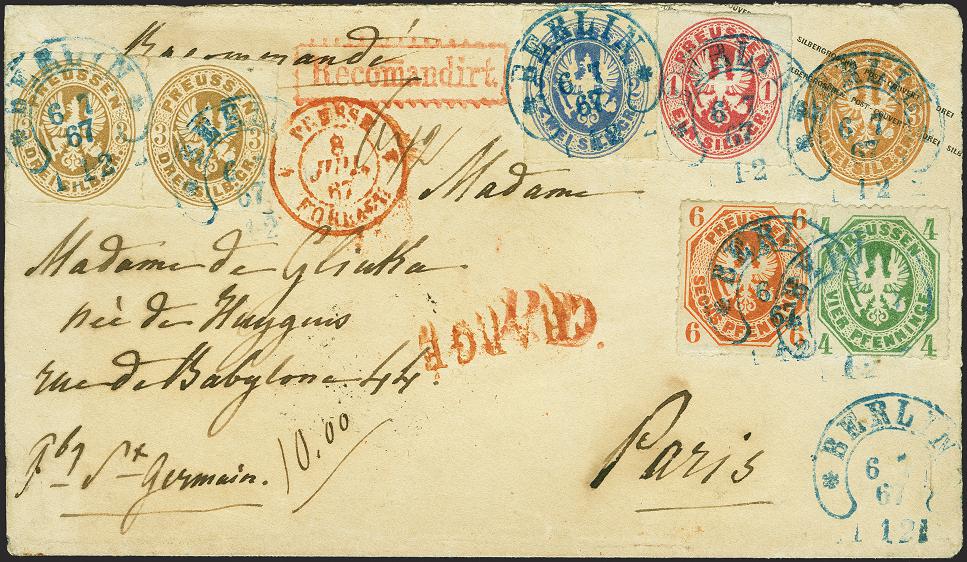 Recommandé
Recomandirt.
BERLIN
6 7
67
PREUSSEN
3 3
DREI SILBERGR.
PREUSSEN
3 3
DREI SILBERGR.
PRUSSE
8
JUIL
67
FORBACH
BERLIN
6 7
67
ZWEI SILBERGR.
PREUSSEN
1 1
EIN SILBERGR.
6 7
67
12
DREI SILBERGR.
12
Madame
Madame de Glinka
née de Huygens
rue de Babylone 44.
fbg St Germain.
10.00
CHARGÉ.
Paris
6 PREUSSEN 6
6 SECHS PFENNINGE 6
PREUSSEN 4
4 VIER PFENNINGE 4
BERLIN
6 7
67